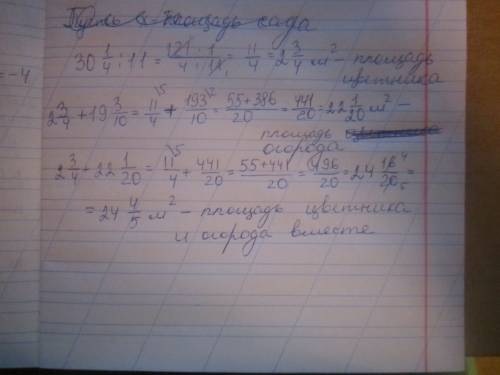 площадь сада
30 1/4 : 11 = 121 · 1 / 4 · 11 = 11/4 = 2 3/4 м² - площадь
цветника
2 3/4 + 19 3/10 = 11/4 \5 + 193/10 \2 = 55+386/20 = 441/20 = 22 1/20 м² -
площадь
огорода
2 3/4 + 22 1/20 = 11/4 \5 + 441/20 = 55+441/20 = 496/20 = 24 16/20 4 5 =
= 24 4/5 м² - площадь цветника
и огорода вместе
= -4